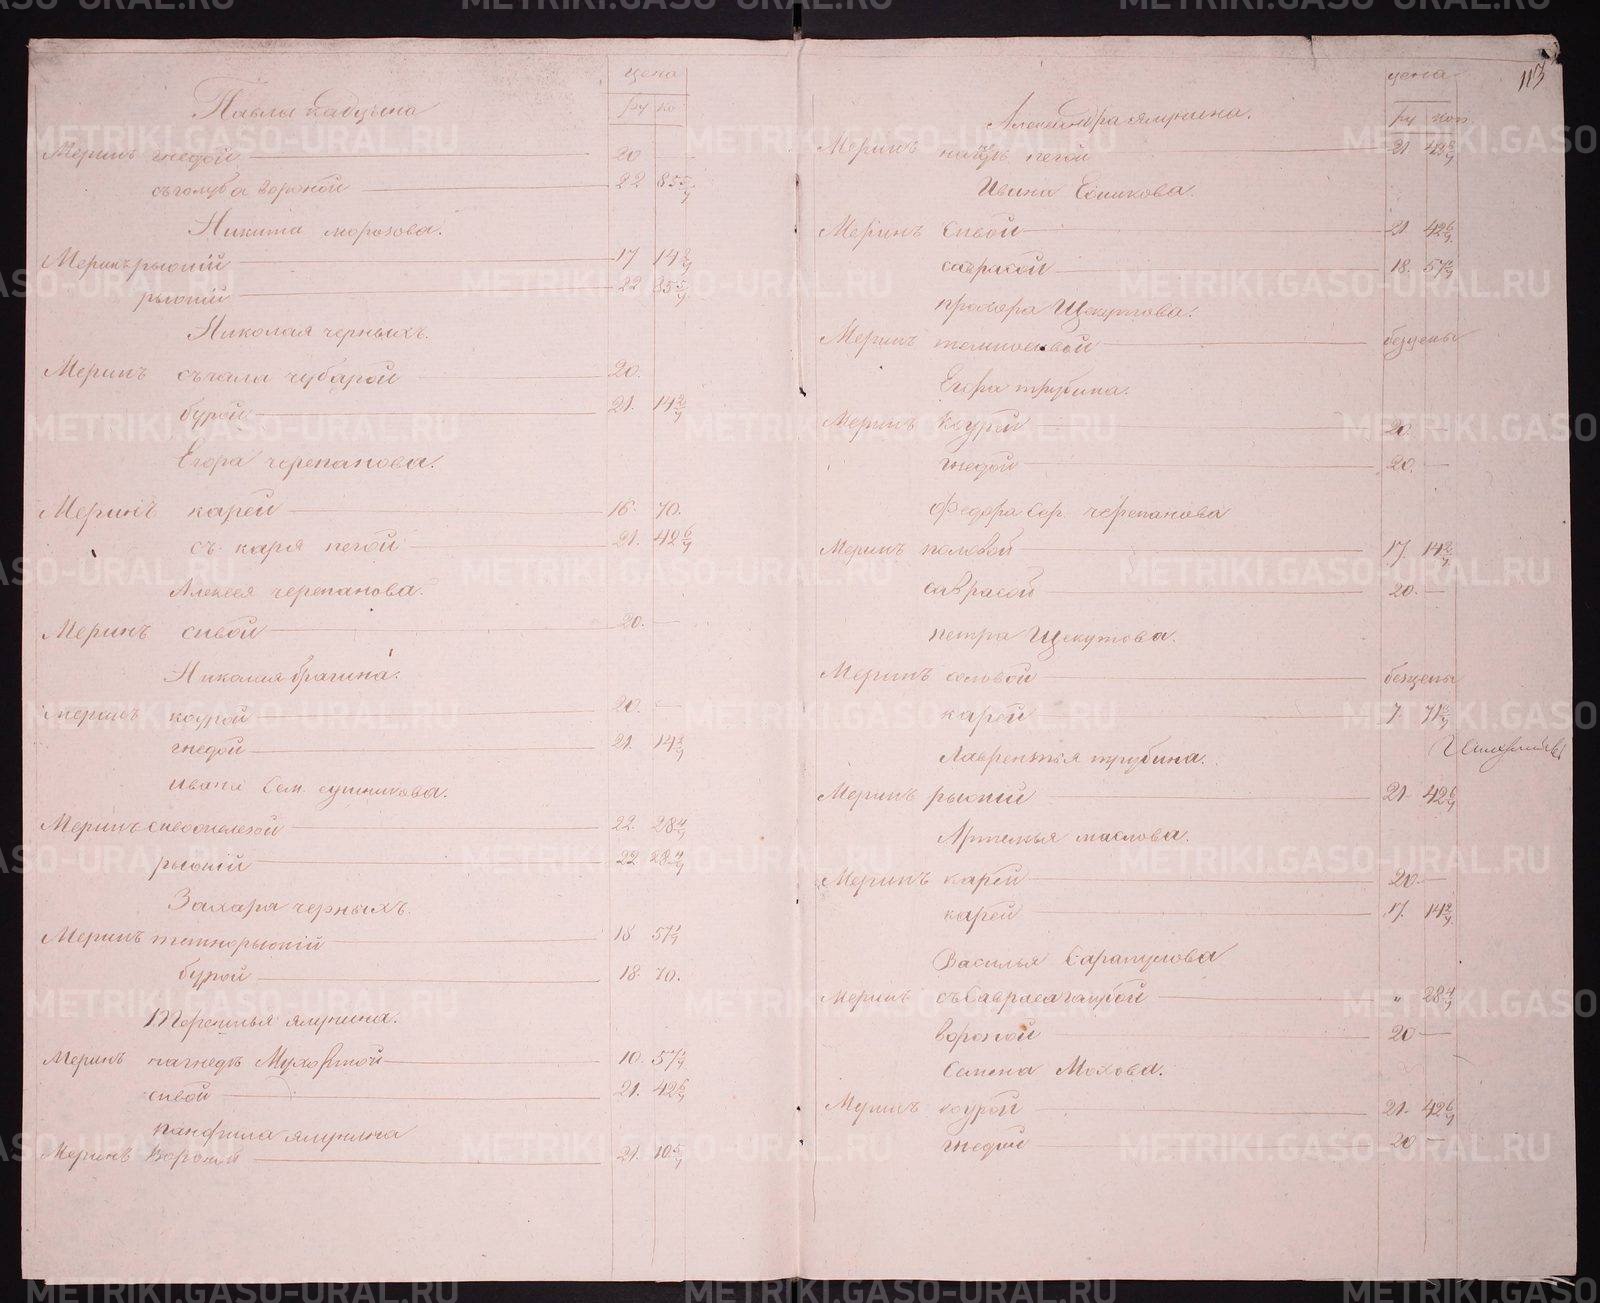 цена
ру ко
Павла
Меринъ гнедой 20
съголуба вороной 22 85 5/7
Никита морозова.
Меринъ рыжiй 17 14 2/7
рыжiй 22 85 5/7
Николая черныхъ.
Меринъ съчала чубарой 20.
бурой 21. 14 2/7
Егора черепанова.
Меринъ карей 16. 70.
съ каря пегой 21. 42 6/7
Алексея черепанова.
Меринъ сивой 20. —
Николая брагина.
меринъ коурой 20. —
гнедой 21. 14 2/7
ивана Сем. сушникова.
Меринъ 22. 28 4/7
рыжiй 22 28 4/7
Захара черныхъ.
Меринъ темнорыжiй 18 57 1/7
бурой 18. 70.
Терентья ялунина.
Меринъ нагнедъ Мухортой 10. 57 1/7
сивой 21. 42 6/7
панфила ялунина
Меринъ Вороной 21. 10 5/7
113
цена
ру коп.
Александра ялунина.
Меринъ пегой 21. 42 6/7
Ивана
Меринъ Сивой 21 42 6/7
саврасой 18. 57 1/7
прохора Щекутова.
Меринъ безцены
Егора трубина.
Меринъ Коурой 20. —
гнедой 20. —
Федора Сер. черепанова
Меринъ половой 17. 14 2/7
саврасой 20. —
петра Щекутова.
Меринъ соловой безцены
карей 7. 71 3/7
Лаврентья трубина.
Меринъ рыжiй 21. 42 6/7
Артемья маслова.
Меринъ карей 20. —
карей 17. 14 2/7
Василья Сарапулова
Меринъ 28 4/7
вороной 20 —
Семена Мохова.
Меринъ коурой 21. 42 6/7
гнедой 20 —
METRIKI.GASO-URAL.RU